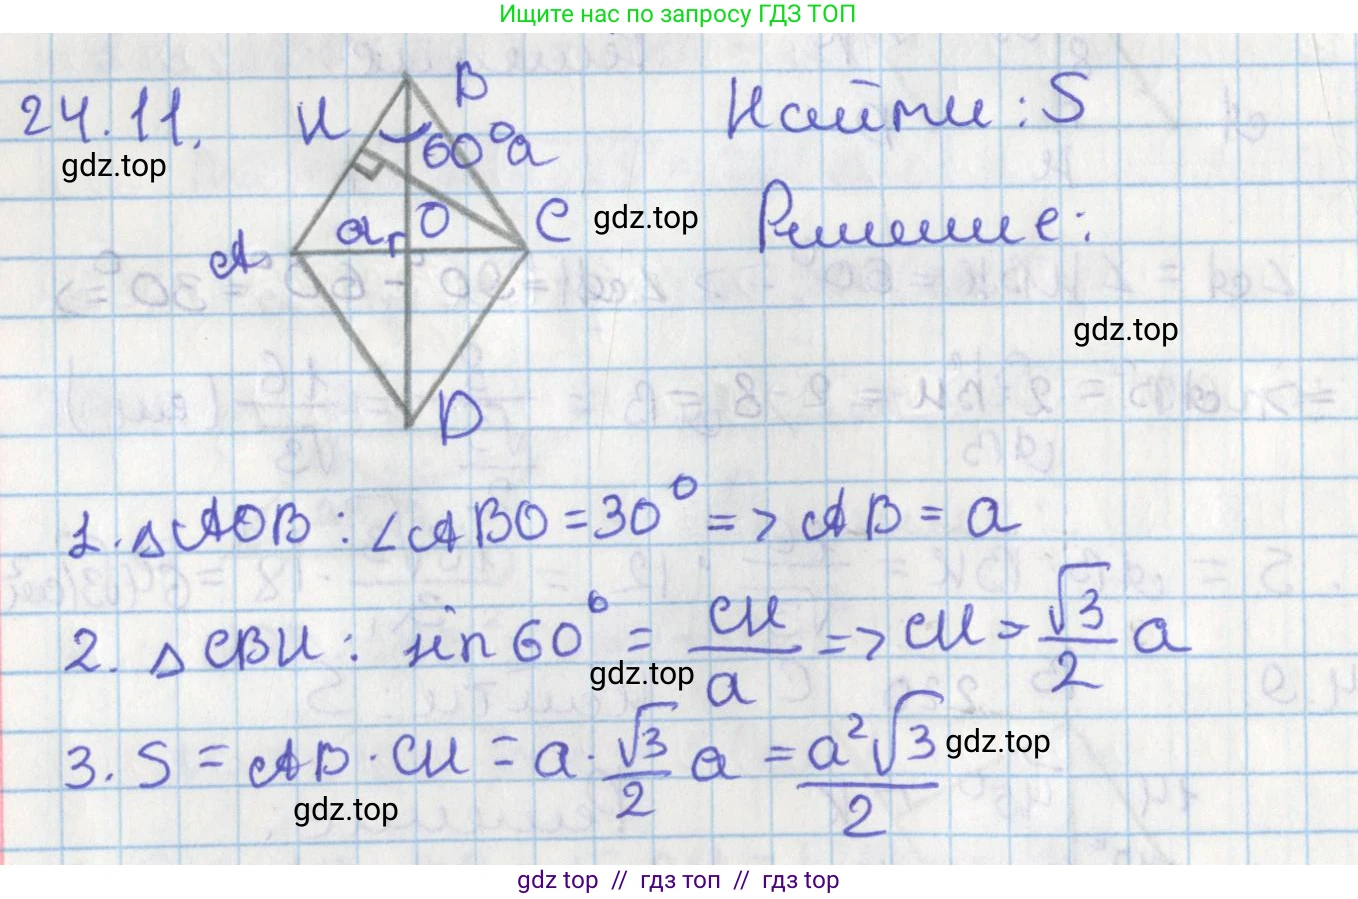 Ищите нас по запросу ГДЗ ТОП
24.11.
gdz.top
H
B
60°
a
A
a
O
C
D
Найти: S
gdz.top
Решение:
gdz.top
1. △AOB: ∠ABO = 30° => AB = a
2. △CBH: sin 60° = CH/a => CH = √3/2 a
gdz.top
3. S = AB · CH = a · √3/2 a = a²√3/2
gdz.top
gdz.top
gdz top // гдз топ // гдз top